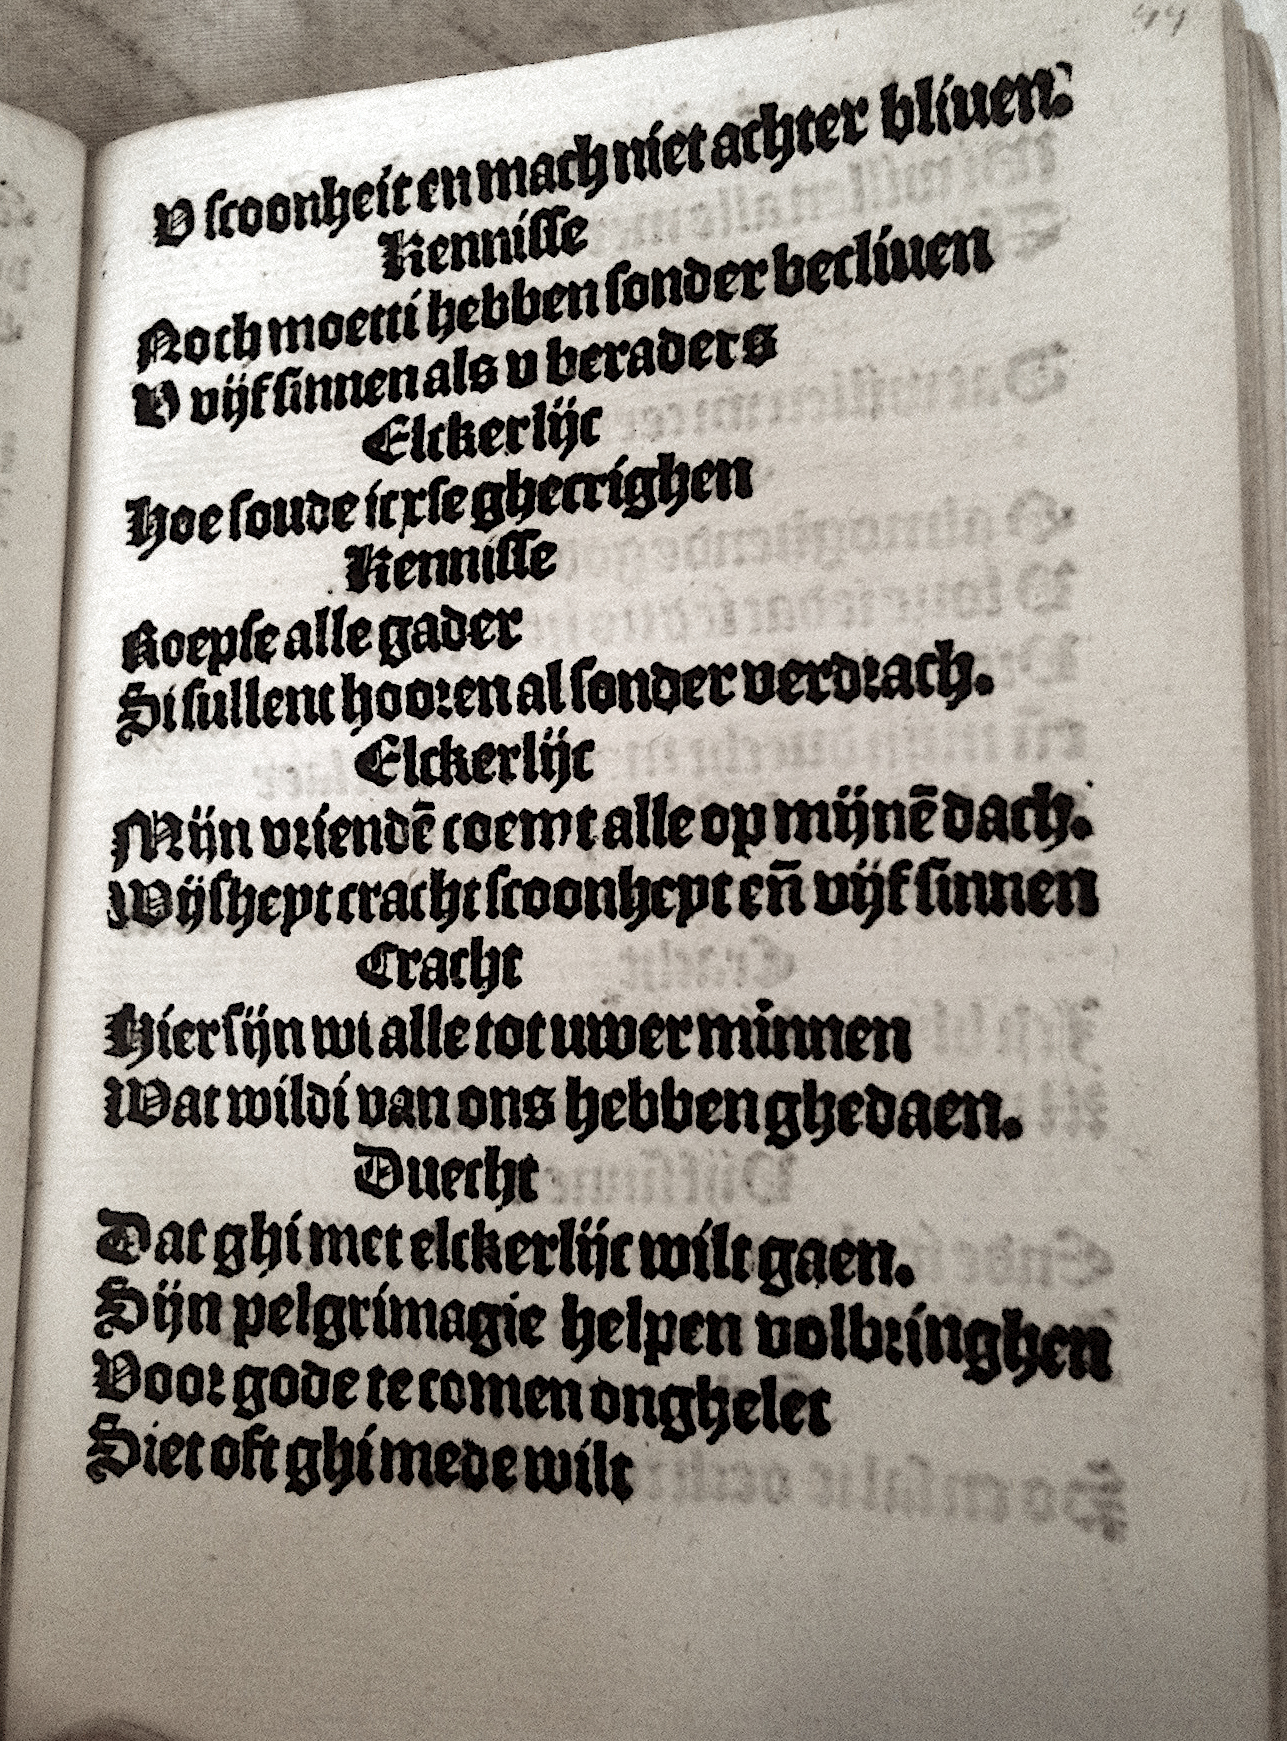 V scoonheit en mach niet achter bliuen.
Kennisse
Noch moetti hebben sonder becliuen
V vijf sinnen als v beraders
Elckerlijc
Hoe soude icxse ghecrighen
Kennisse
Roepse alle gader
Si sullent hooren al sonder verdrach.
Elckerlijc
Mijn vriendē coemt alle op mijnē dach.
Wijsheyt cracht scoonheyt eñ vijf sinnen
Cracht
Hier sijn wi alle tot uwer minnen
Wat wildi van ons hebben ghedaen.
Duecht
Dat ghi met elckerlijc wilt gaen.
Sijn pelgrimagie helpen volbringhen
Voor gode te comen onghelet
Siet oft ghi mede wilt